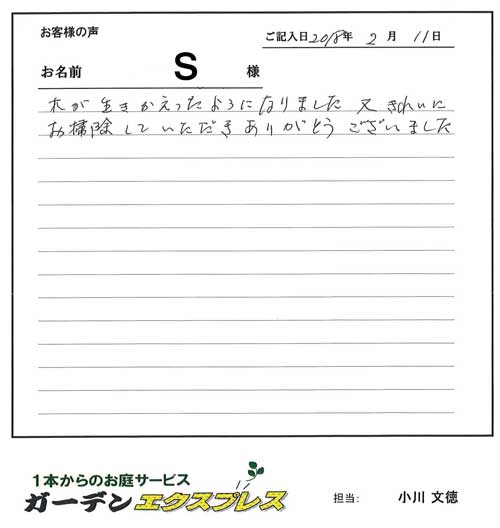 お客様の声
ご記入日2018年 2月 11日
お名前 S 様
木が生きかえったようになりました 又 きれいに
お掃除していただきありがとうございました
1本からのお庭サービス
ガーデンエクスプレス
担当: 小川 文徳